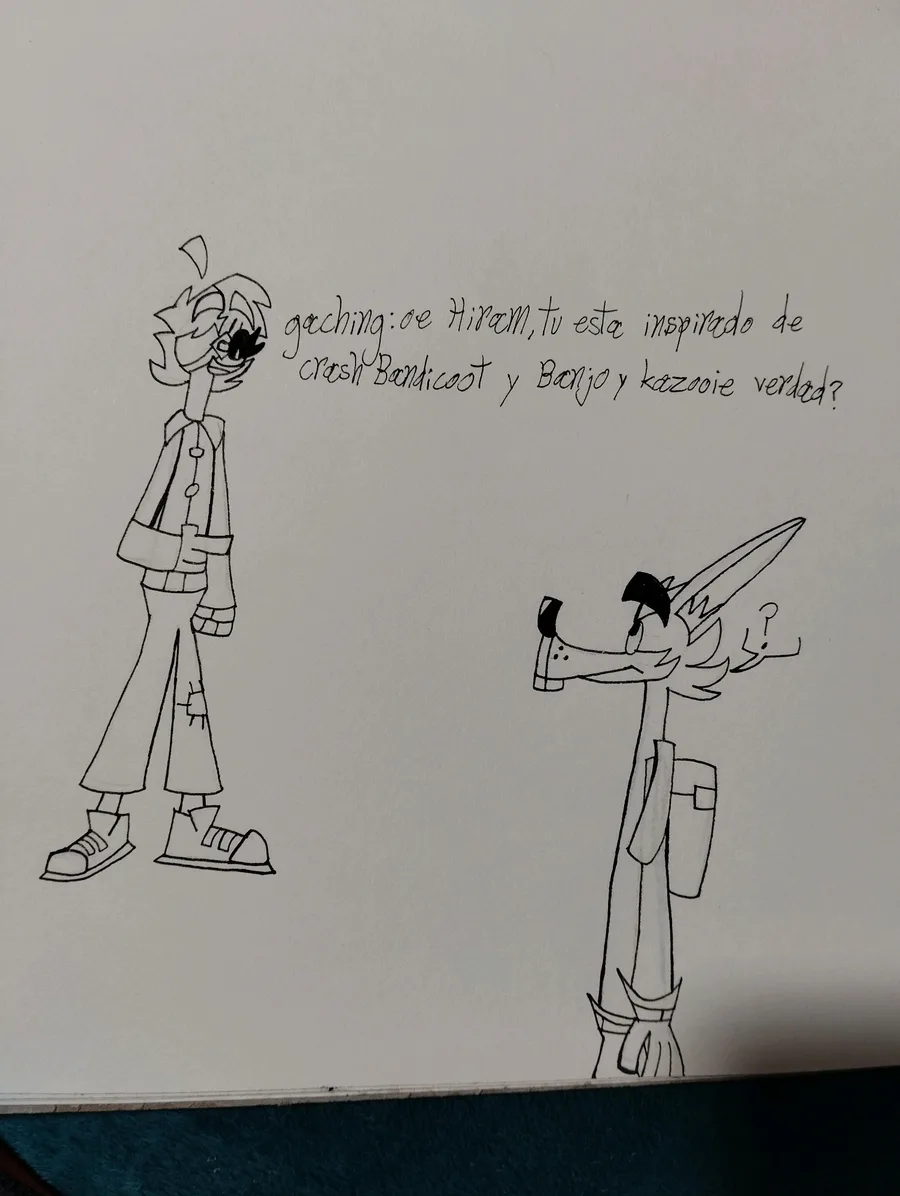 gaching: oe Hiram, tu esta inspirado de
crash Bandicoot y Banjo y kazooie verdad?
?